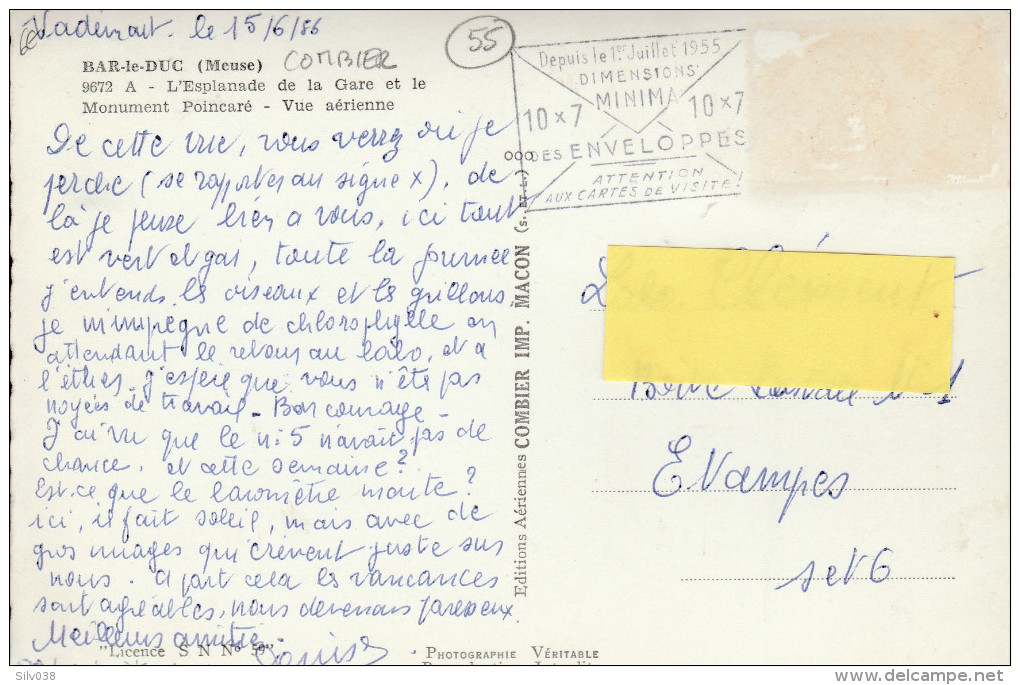 le 15/6/56
COMBIER
55
BAR-le-DUC (Meuse)
9672 A - L'Esplanade de la Gare et le
Monument Poincaré - Vue aérienne
De cette vue, vous verrez où je
perche (se rapporter au signe x), de
là je pense bien à vous, ici tout
est vert et gai, toute la journée
j'entends les oiseaux et les grillons,
je m'imprègne de chlorophylle en
attendant le retour au labo, et à
l'éther. j'espère que vous n'êtes pas
noyées de travail - Bon courage -
J'ai vu que le n: 5 n'avait pas de
chance. et cette semaine?
Est-ce que le baromètre monte?
ici, il fait soleil, mais avec de
gros nuages qui crèvent juste sur
nous. A part cela les vacances
sont agréables, nous devenons paresseux.
Meilleures amitiés.
"Licence S N N° 59"
Depuis le 1er Juillet 1955
DIMENSIONS
MINIMA
10 x 7 10 x 7
DES ENVELOPPES
ATTENTION
AUX CARTES DE VISITE!
Editions Aériennes COMBIER IMP. MACON (S. ET L.)
N° 1
Etampes
S et O
PHOTOGRAPHIE VÉRITABLE
Silv038
delcampe.net